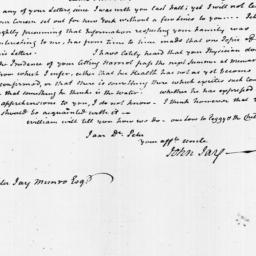 any of your Letters, since I was with you last Fall; yet I will not let
our Cousin set out for New York without a few lines to you —
rightly presuming that Information respecting your Family was
interesting to me, has from time to time made that one Topic of
his Letters. I have lately heard that your Physician
the Prudence of your letting Harriot pass the next Summer at
from which I infer, either that her Health has not as yet become
confirmed, or that there is something there which excites such
that something he thinks is the water. whether he has expressed
apprehensions to you, I do not know. I think however that
should be acquainted with it —
William will tell you how we do — our love to Peggy & the Child
I am Dr. Peter
your affte. uncle
John Jay
Peter Jay Munro Esqr.